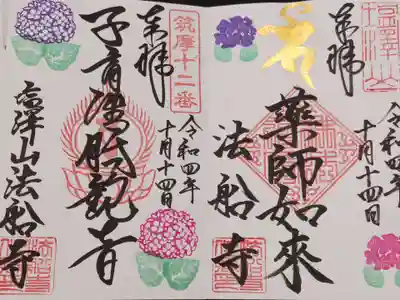 塩澤山
奉拝
令和四年
十月十四日
薬師如來
法船寺
筑摩十二番
奉拝
令和四年
十月十四日
子育準胝観音
塩澤山法船寺